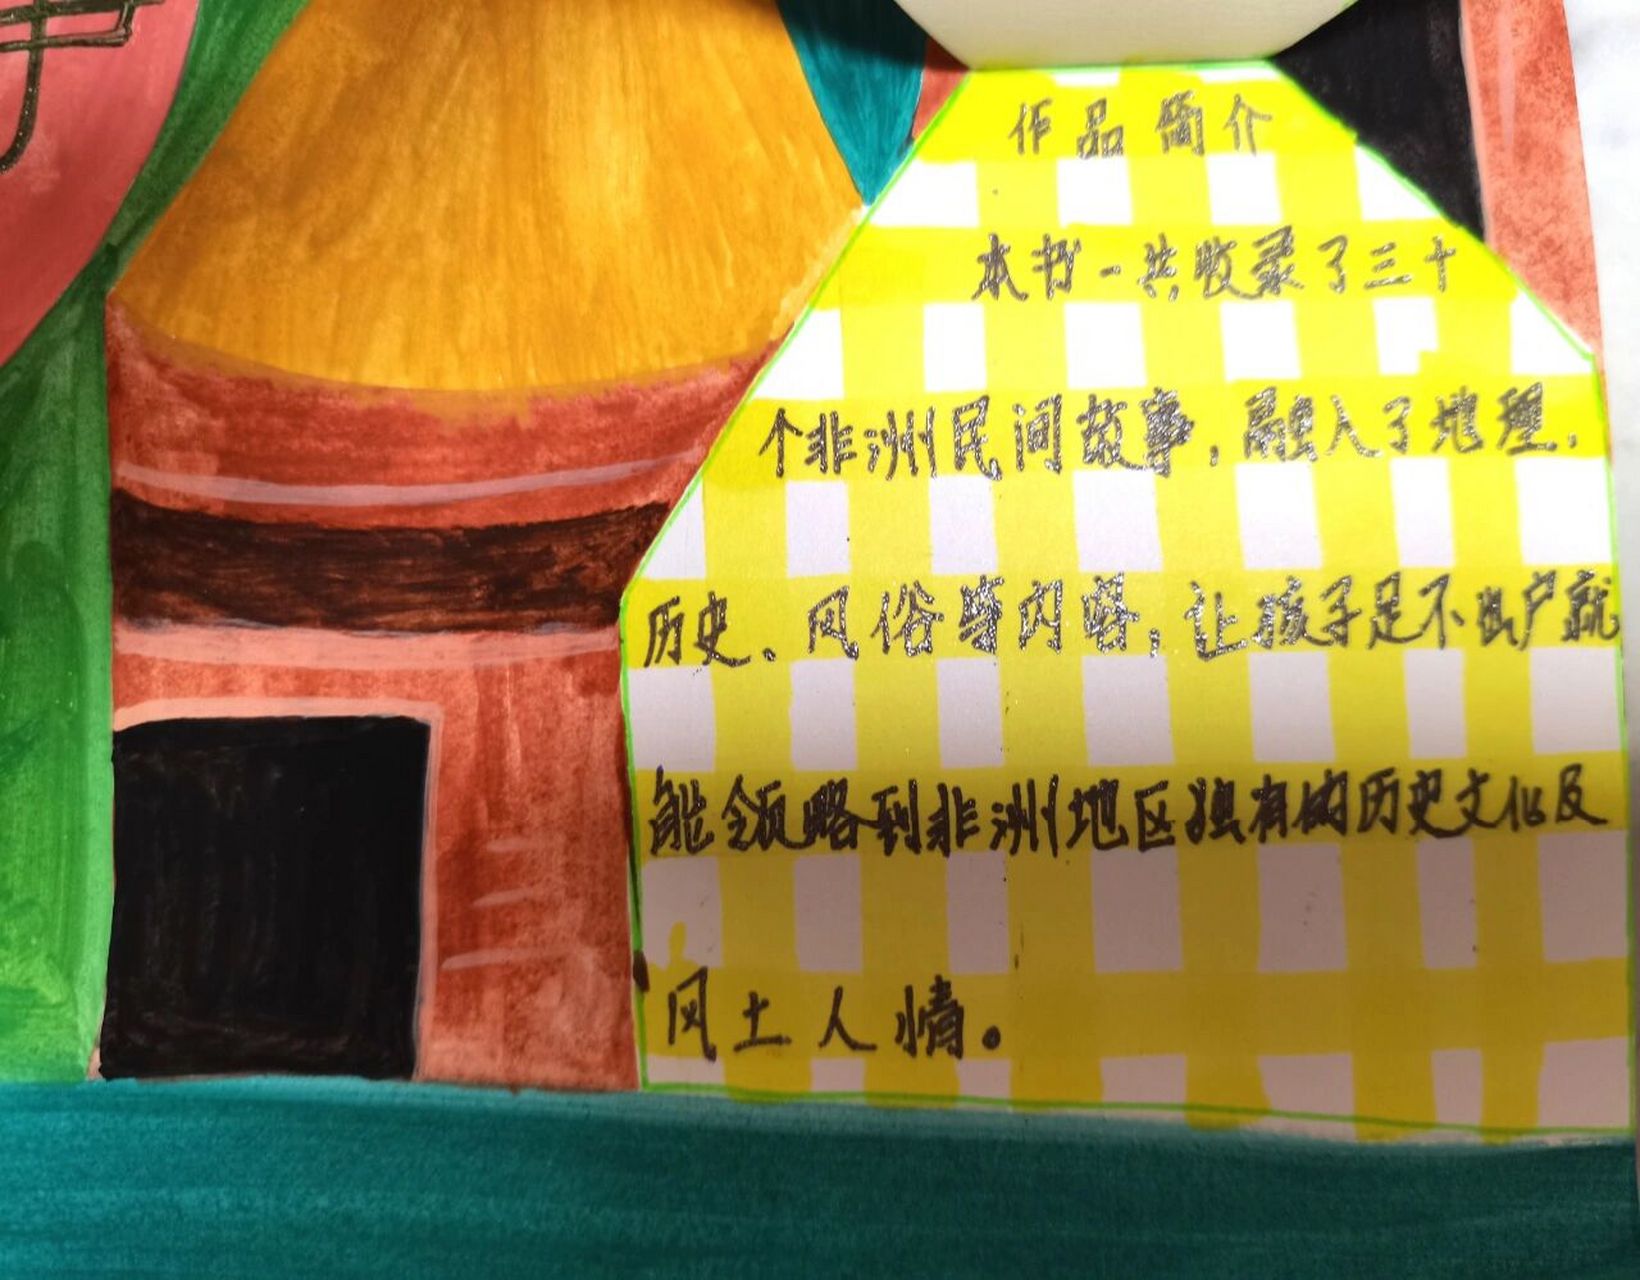 作品简介
本书一共收录了三十
个非洲民间故事，融入了地理、
历史、风俗等内容，让孩子足不出户就
能领略到非洲地区独有的历史文化及
风土人情。